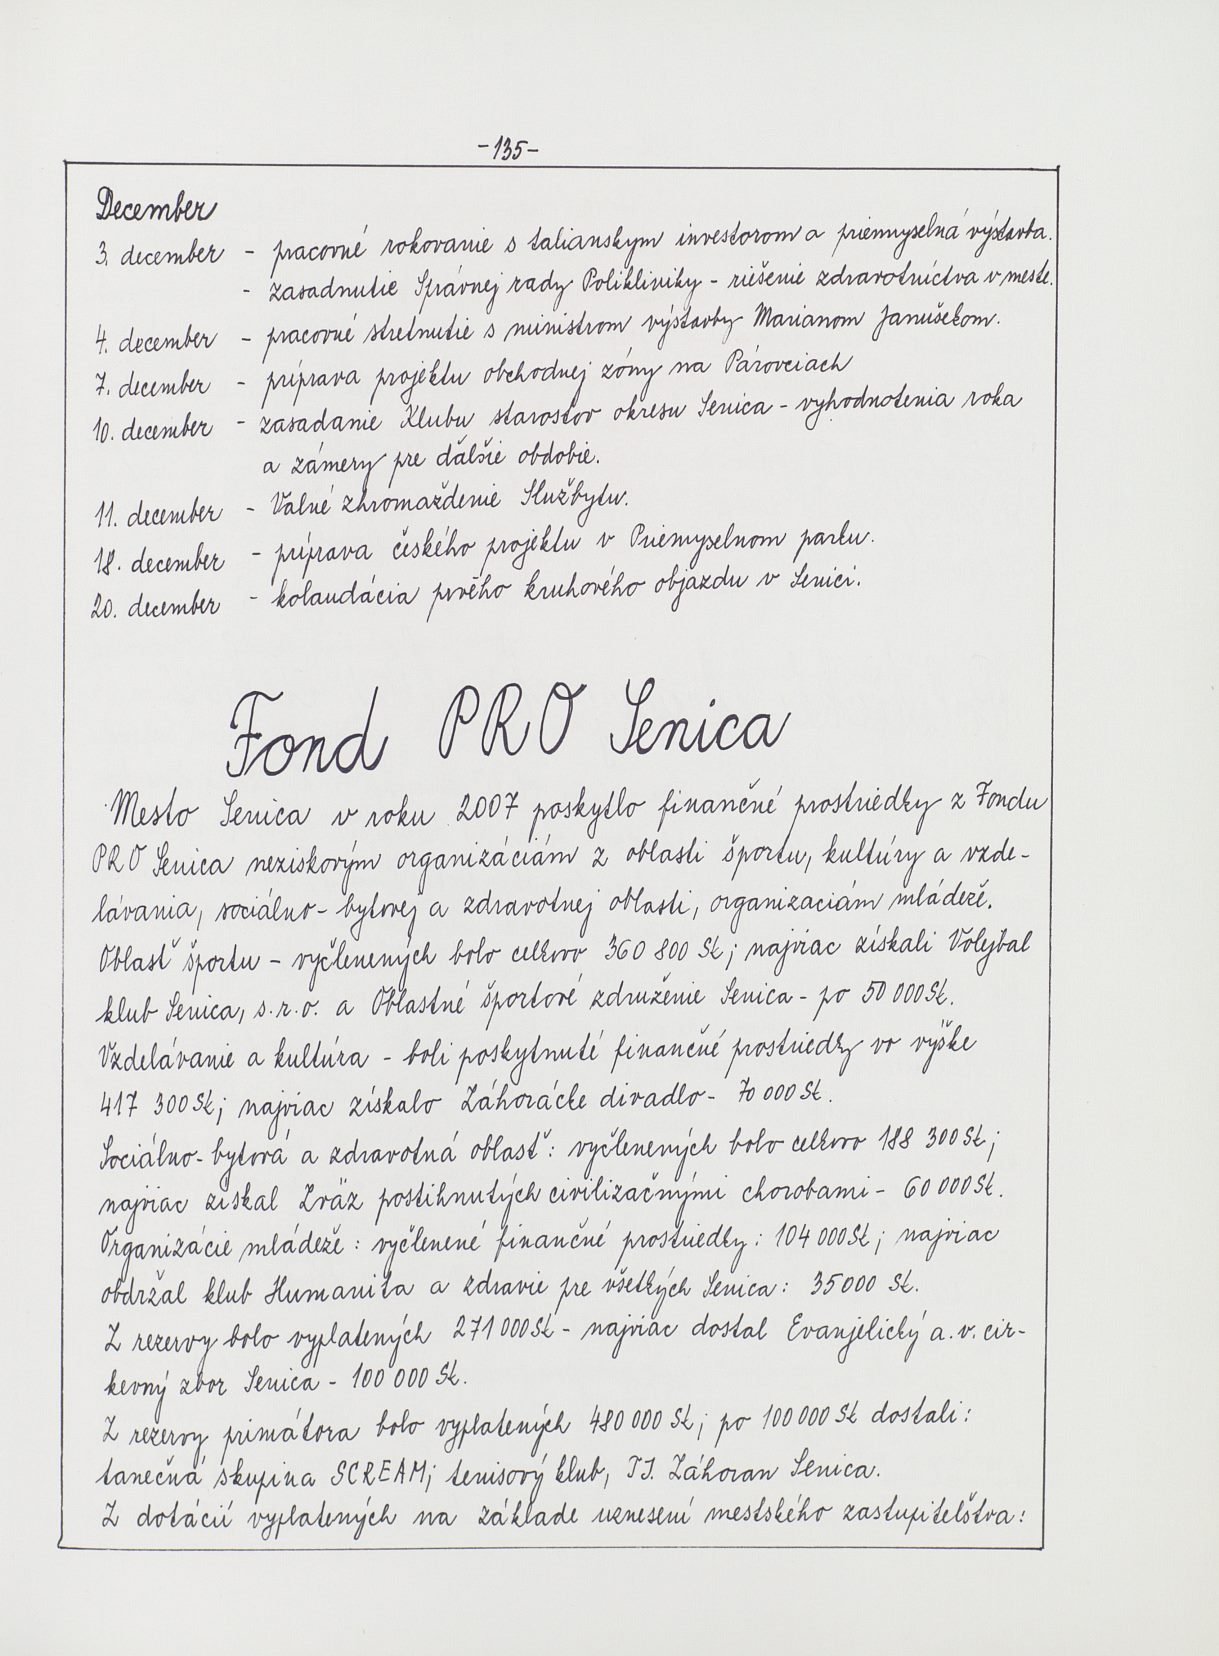 -135-
December
3. december - pracovné rokovanie s talianskym investorom a priemyselná výstavba.
- zasadnutie Správnej rady Polikliniky - riešenie zdravotníctva v meste.
4. december - pracovné stretnutie s ministrom výstavby Marianom Janušekom.
7. december - príprava projektu obchodnej zóny na Párovciach
10. december - zasadanie Klubu starostov okresu Senica - vyhodnotenia roka
a zámery pre ďalšie obdobie.
11. december - Valné zhromaždenie Službytu.
18. december - príprava českého projektu v Priemyselnom parku.
20. december - kolaudácia prvého kruhového objazdu v Senici.
Fond PRO Senica
Mesto Senica v roku 2007 poskytlo finančné prostriedky z Fondu
PRO Senica neziskovým organizáciám z oblasti športu, kultúry a vzde-
lávania, sociálno-bytovej a zdravotnej oblasti, organizaciám mládeže.
Oblasť športu - vyčlenených bolo celkovo 360 800 Sk; najviac získali Volejbal
klub Senica, s.r.o. a Oblastné športové združenie Senica - po 50 000 Sk.
Vzdelávanie a kultúra - boli poskytnuté finančné prostriedky vo výške
417 300 Sk; najviac získalo Záhorácke divadlo - 70 000 Sk.
Sociálno-bytová a zdravotná oblasť: vyčlenených bolo celkovo 188 300 Sk;
najviac získal Zväz postihnutých civilizačnými chorobami - 60 000 Sk.
Organizácie mládeže: vyčlenené finančné prostriedky: 104 000 Sk; najviac
obdržal klub Humanita a zdravie pre všetkých Senica: 35 000 Sk.
Z rezervy bolo vyplatených 271 000 Sk - najviac dostal Evanjelický a. v. cir-
kevný zbor Senica - 100 000 Sk.
Z rezervy primátora bolo vyplatených 480 000 Sk; po 100 000 Sk dostali:
tanečná skupina SCREAM; tenisový klub, TJ. Záhoran Senica.
Z dotácií vyplatených na základe uznesení mestského zastupiteľstva: